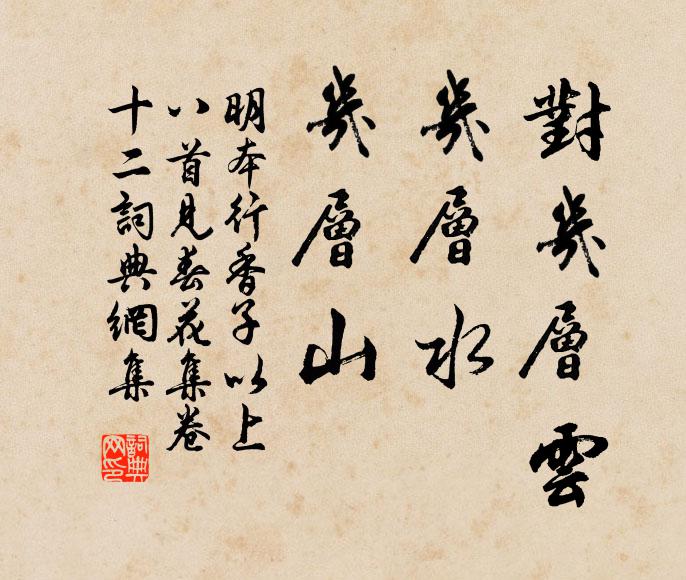 對幾層雲
幾層水
幾層山
明本行香子以上
八首見春花集卷
十二詞典網集
詞典網印